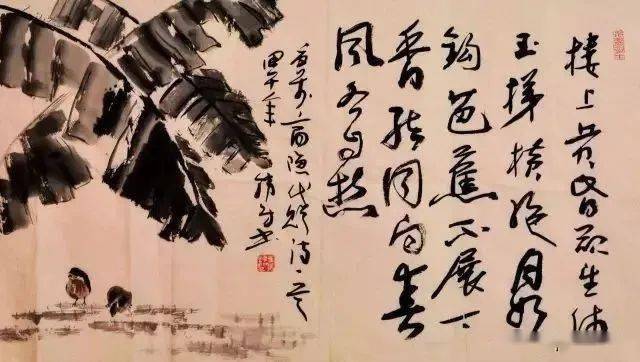 楼上黄昏欲望休
玉梯横绝月如
钩芭蕉不展丁
香结同向春
风各自愁
商隐代赠诗一首
甲午年 书